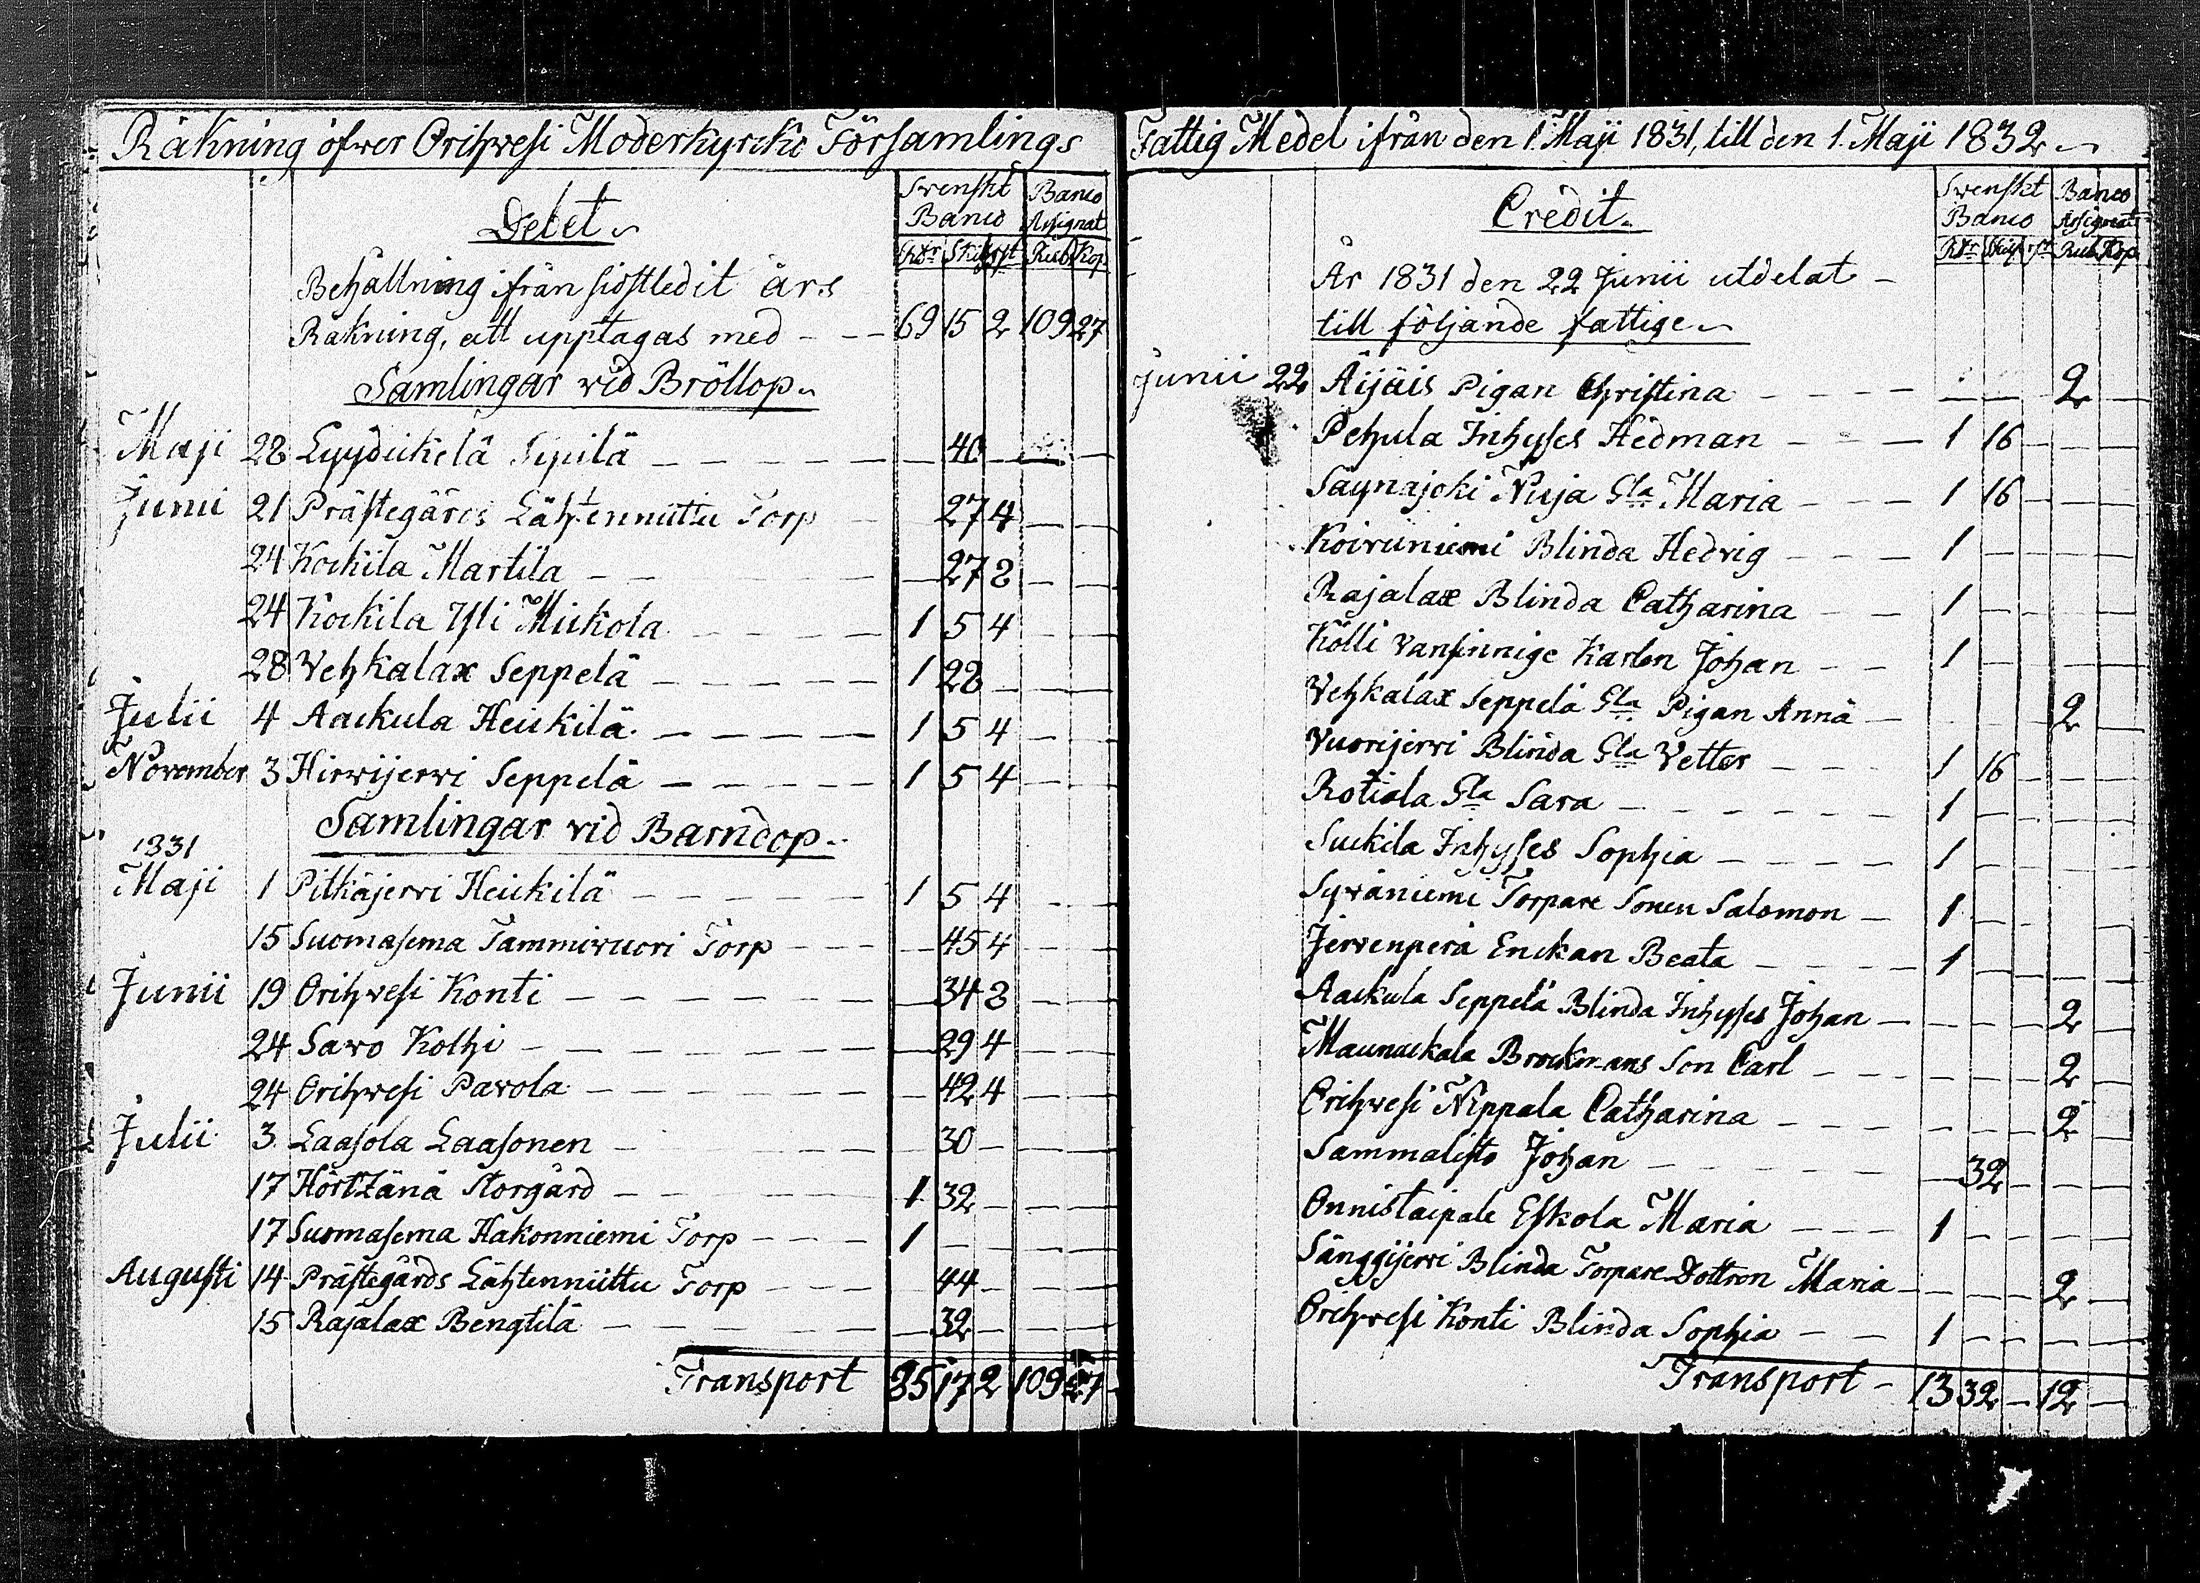 Räkning öfwer Orihwesi Moderkyrcko Församlings
Debet
Svenskt Banco Banco Assignat
Rdr Skil rst Rub Kop
Behållning ifrån sistledit års
Räkning, att upptagas med - - 69 15 2 109 27
Samlingar vid Bröllop
Maji 28 Lyydickelä Sipilä - - - - - 40 - - -
Junii 21 Prästegårds Lähtenniittu Torp - 27 4 - -
24 Kockila Martila - - - - 27 8 - -
24 Kockila Yli Mickola - - - - 1 5 4 - -
28 Vehkalax Seppelä - - - - - 1 28 - - -
Julii 4 Aackula Heickilä - - - - - 1 5 4 - -
November 3 Hirvijervi Seppelä - - - - - 1 5 4 - -
Samlingar vid Barndop
1831
Maji 1 Pitkäjervi Heickilä - - - - - 1 5 4 - -
15 Suomasema Tammivuori Torp - - - - 45 4 - -
Junii 19 Orihvesi Konti - - - - - - 34 8 - -
24 Savo Kolhi - - - - - - - 29 4 - -
24 Orihvesi Pavola - - - - - - 42 4 - -
Julii 3 Laasola Laasonen - - - - - - 30 - - -
17 Hörtzänä Storgård - - - - - 1 32 - - -
17 Suomasema Hakonniemi Torp - - - 1 - - - -
Augusti 14 Prästegårds Lähtenniittu Torp - - - - 44 - - -
15 Rajalax Bengtilä - - - - - - 32 - - -
Transport 85 17 2 109 27
Fattig Medel ifrån den 1. Maji 1831, till den 1. Maji 1832
Credit
Svenskt Banco Banco Assignat
Rdr Skil rst Rub Kop
År 1831 den 22 Junii utdelat -
till följande fattige
Junii 22 Äijäis Pigan Christina - - - - - - - 2 -
Pehula Inhyses Hedman - - - 1 16 - - -
Saynajoki Nuja Gla Maria - - - 1 16 - - -
Koivuniemi Blinda Hedvig - - - 1 - - - -
Rajalax Blinda Catharina - - 1 - - - -
Kölli Vansinnige Karlen Johan - - 1 - - - -
Vehkalax Seppelä Gla Pigan Anna - - - - 2 -
Vuorijervi Blinda Gla Vetter - - - 1 16 - - -
Rotiala Gla Sara - - - - - - 1 - - - -
Suckila Inhyses Sophia - - - - 1 - - - -
Syväniemi Torpare Sonen Salomon - 1 - - - -
Jervenperä Enckan Beata - - - - 1 - - - -
Aackula Seppelä Blinda Inhyses Johan - - - - 2 -
Maunuckala Brockmans Son Carl - - - - - - 2 -
Orihvesi Nippala Catharina - - - - - - - 2 -
Sammalisto Johan - - - - - - 32 - - -
Onnistaipale Eskola Maria - - - 1 - - - -
Sänggijervi Blinda Torpare Dottron Maria - - - - 2 -
Orihvesi Konti Blinda Sophia - - 1 - - - -
Transport - 13 32 - 12 -